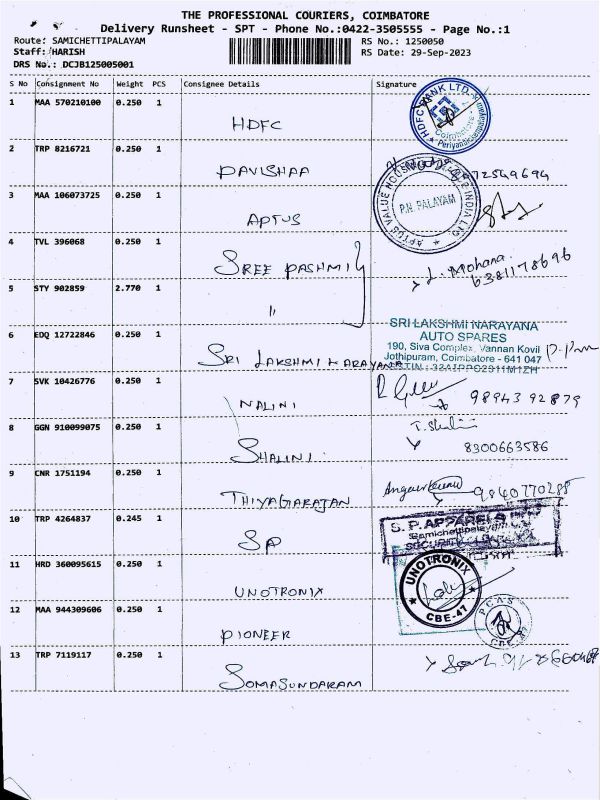 THE PROFESSIONAL COURIERS, COIMBATORE
Delivery Runsheet - SPT - Phone No.:0422-3505555 - Page No.:1
Route: SAMICHETTIPALAYAM RS No.: 1250050
Staff: HARISH RS Date: 29-Sep-2023
DRS No.: DCJB125005001
S No Consignment No Weight PCS Consignee Details Signature
1 MAA 570210100 0.250 1 HDFC
HDFC BANK LTD. Coimbatore
2 TRP 8216721 0.250 1 PAVISHAA
3 MAA 106073725 0.250 1 APTUS
APTUS VALUE HOUSING INDIA LTD P.N. PALAYAM
4 TVL 396068 0.250 1 SREE PASHMI
L. Mohana
6381178696
5 STY 902859 2.770 1 "
6 EDQ 12722846 0.250 1 SRI LAKSHMI NARAYANA
SRI LAKSHMI NARAYANA
AUTO SPARES
190, Siva Complex, Vannan Kovil
Jothipuram, Coimbatore - 641 047
7 SVK 10426776 0.250 1 NALINI
98943 92879
8 GGN 910099075 0.250 1 SHALINI
T. Shalini
8300663586
9 CNR 1751194 0.250 1 THIYAGARAJAN
9840770285
10 TRP 4264837 0.245 1 SP
S. P. APPARELS
Samichettipalayam
SECURITY
11 HRD 360095615 0.250 1 UNOTRONIX
UNOTRONIX CBE-47
12 MAA 944309606 0.250 1 PIONEER
13 TRP 7119117 0.250 1 SOMASUNDARAM